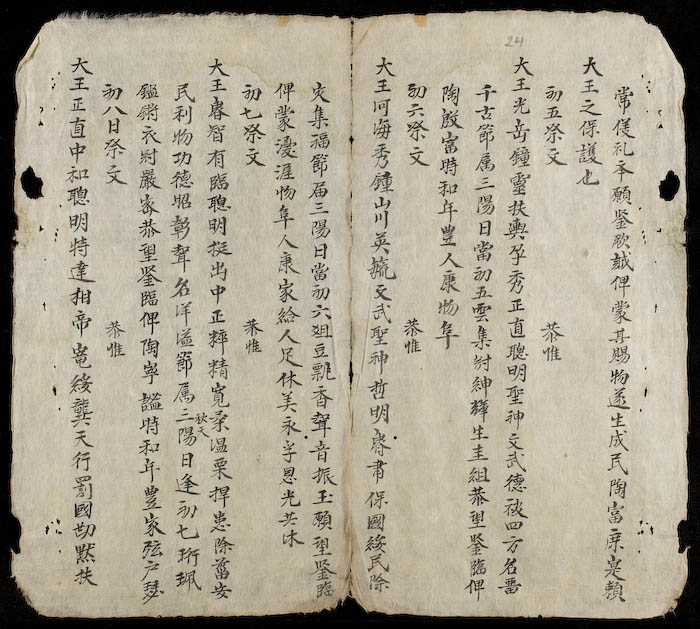 24
常從礼奉願鉴欲越俾蒙其賜物遂生成民陶富庶寔頼
大王之保護也
初五祭文
恭惟
大王光岳鐘靈扶輿孕秀正直聰明聖神文武德被四方名番
千古節属三陽日當初五雲集紳紳輝生圭組恭望鉴臨俾
陶殷富時和年豊人康物阜
初六祭文
恭惟
大王河海秀鐘山川英毓文武聖神哲明睿肅保國綏民除
灾集福節届三陽日當初六俎豆飄香聲音振玉願望鉴臨
俾蒙渥物阜人康家給人足休美永孚恩光共沐
初七祭文
恭惟
大王睿智有臨聰明挺出中正粹精寬柔温栗捍患除菑安
民利物功德昭彰聲名洋溢節属三陽日逢初七珩珮
秋天
鏘衣嚴恭望鉴臨俾陶寧謐時和年豊家弦户瑟
初八日祭文
恭惟
大王正直中和聰明特達相帝綏龔天行罰國黙扶